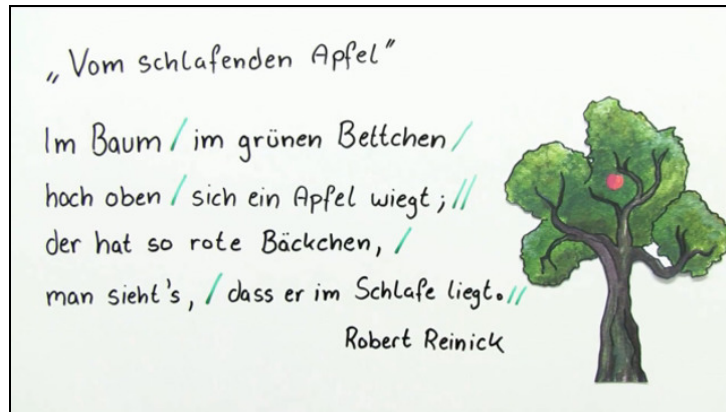 „Vom schlafenden Apfel"
Im Baum / im grünen Bettchen /
hoch oben / sich ein Apfel wiegt; //
der hat so rote Bäckchen, /
man sieht's, / dass er im Schlafe liegt. //
Robert Reinick